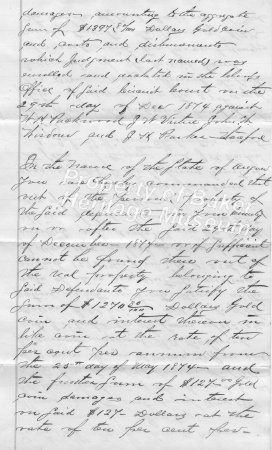 damages amounting to the aggregate
sum of $1397 6/100 Dollars Gold coin
and costs and disbursments
which judgment (last named) was
enrolled and docketed in the Clerks
Office of said Circuit Court in the
29th day of Dec 1874 against
Packwood J W Virtue John H
and J H Parker
In the name of the State of Oregon
You are hereby commanded that
out of the personal property of
the said defendants
on or after the said day
of December 1874 or if sufficient
cannot be found then out of
the real property belonging to
said Defendants You satisfy the
sum of $1270 00/100 Dollars Gold
coin and interest thereon in
like coin at the rate of ten
per cent per annum from
the 25th day of May 1874 and
the further sum of $127.00 Gold
coin damages and interest
on said $127 Dollars at the
rate of ten per cent per
Property of Baker
Heritage Museum